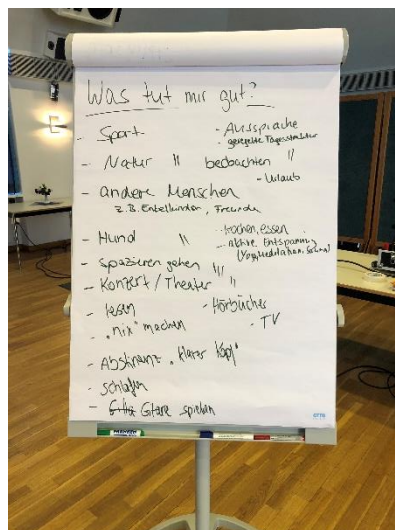 Was tut mir gut?
- Sport - Aussprache
- geregelte Tagesstruktur
- Natur || beobachten ||
- Urlaub
- andere Menschen
z.B. Enkelkinder, Freunde
- Hund || - kochen, essen
- aktive Entspannung
(Yoga, Meditation, Sauna)
- spazieren gehen |||
- Konzert / Theater ||
- lesen - Hörbücher
- "nix" machen - TV
- Abstinenz "klarer Kopf"
- schlafen
- Gitare spielen